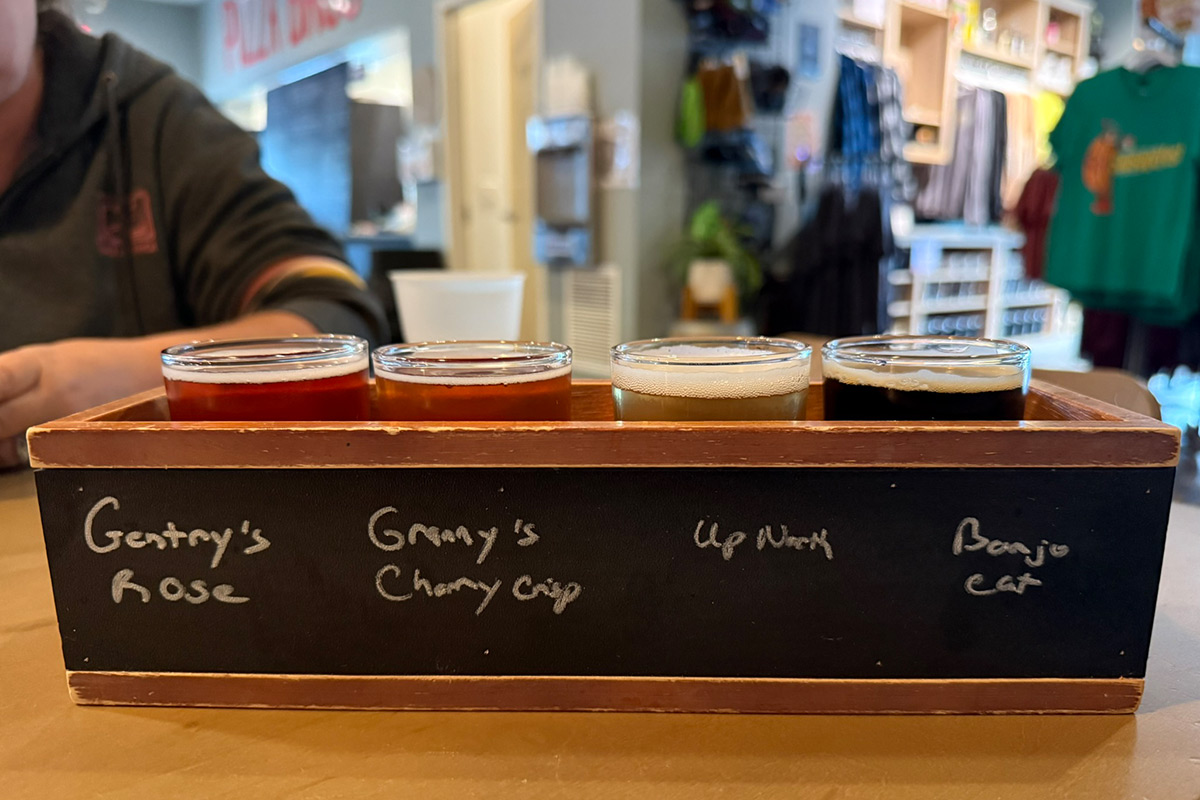 Gentry's
Rose
Granny's
Cherry Crisp
Up North
Banjo
Cat